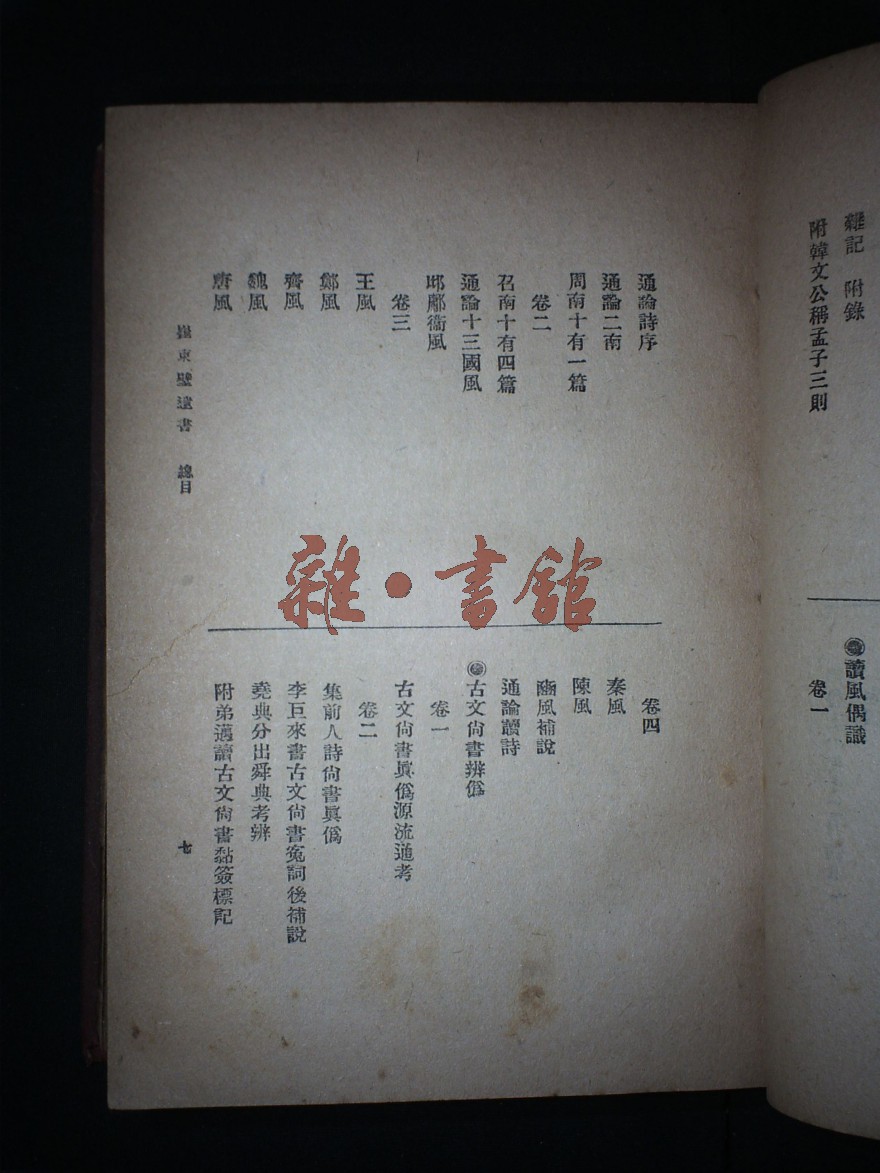 雜記　附錄
附韓文公稱孟子三則
讀風偶識
卷一
通論詩序
通論二南
周南十有一篇
卷二
召南十有四篇
通論十三國風
邶鄘衞風
卷三
王風
鄭風
齊風
魏風
唐風
卷四
秦風
陳風
豳風補說
通論讀詩
古文尙書辨僞
卷一
古文尙書眞僞源流通考
卷二
集前人詩尙書眞僞
李巨來書古文尙書冤詞後補說
堯典分出舜典考辨
附弟邁讀古文尙書黏簽標記
崔東壁遺書　總目
七
雜·書館